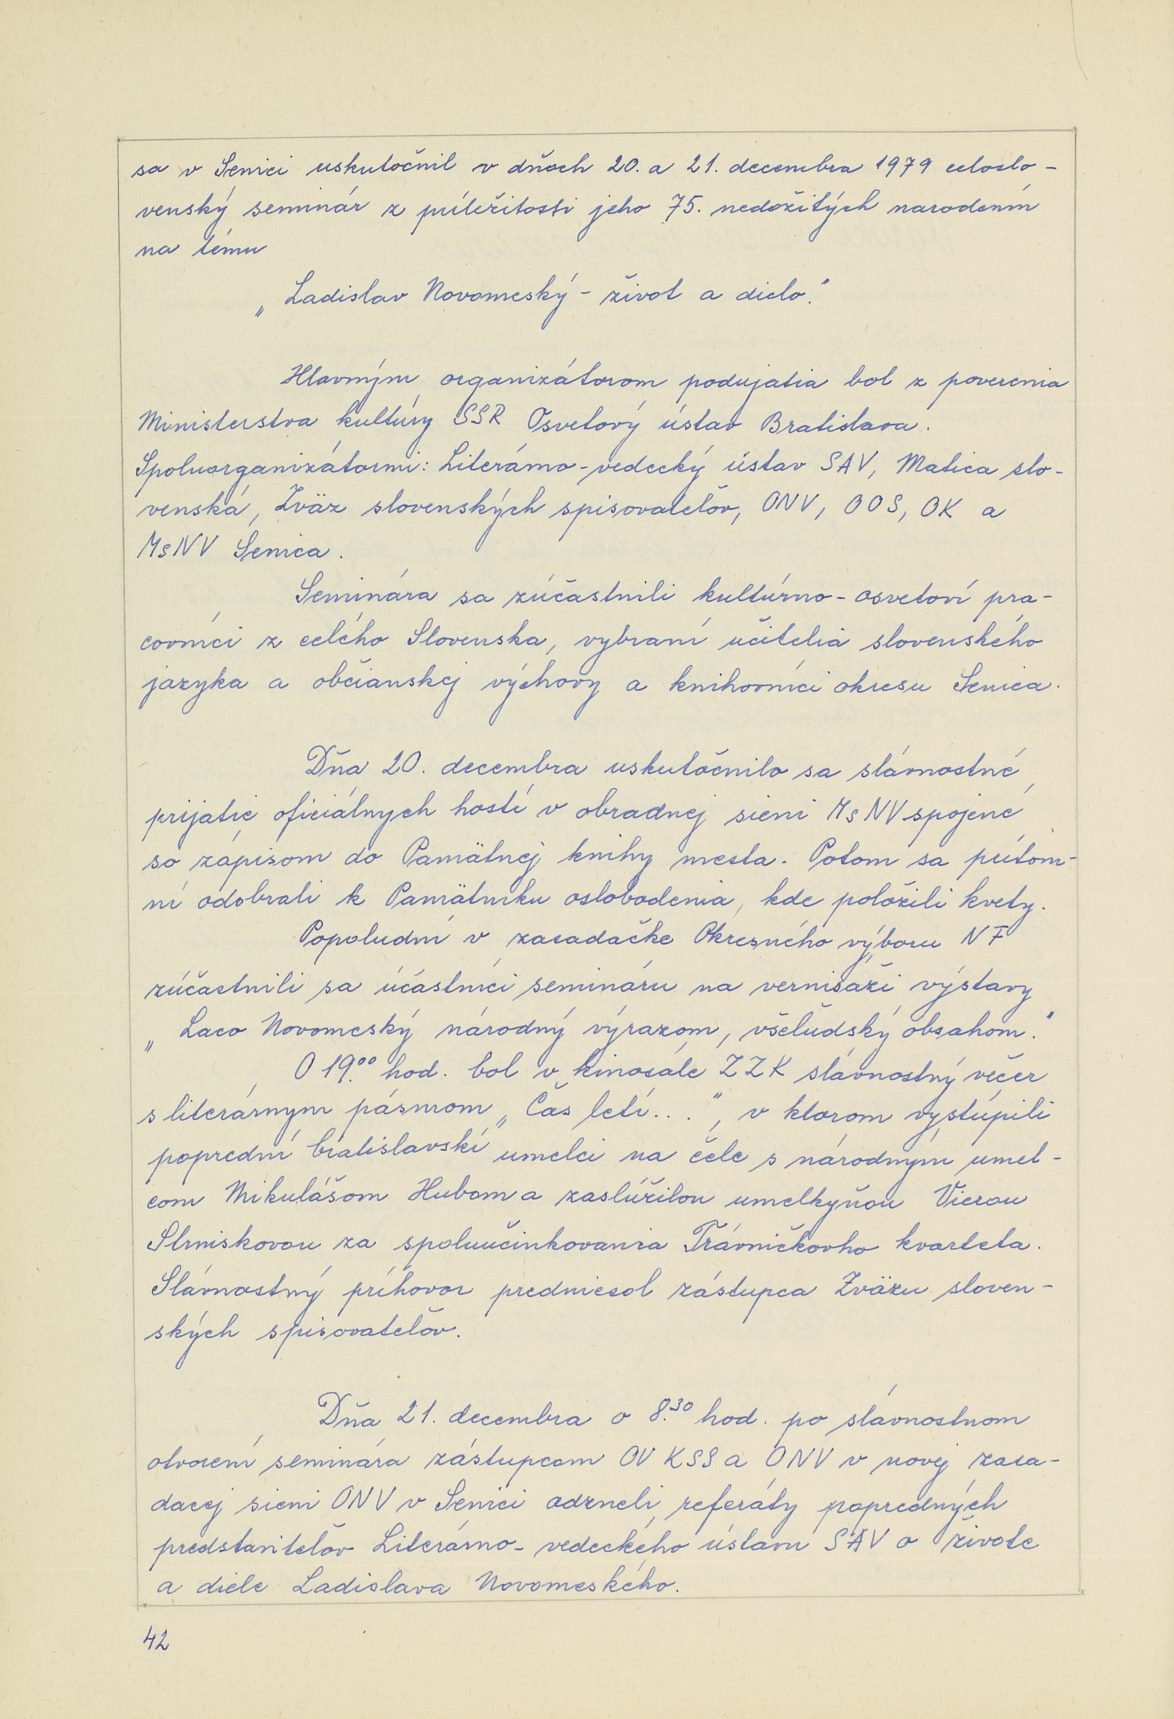 sa v Senici uskutočnil v dňoch 20. a 21. decembra 1979 celoslo-
venský seminár z príležitosti jeho 75. nedožitých narodením
na tému
„Ladislav Novomeský - život a dielo."
Hlavným organizátorom podujatia bol z poverenia
Ministerstva kultúry SSR Osvetový ústav Bratislava.
Spoluorganizátormi: Literárno-vedecký ústav SAV, Matica slo-
venská, Zväz slovenských spisovateľov, ONV, OOS, OK a
MsNV Senica.
Seminára sa zúčastnili kultúrno-osvetoví pra-
covníci z celého Slovenska, vybraní učitelia slovenského
jazyka a občianskej výchovy a knihovníci okresu Senica.
Dňa 20. decembra uskutočnilo sa slávnostné
prijatie oficiálnych hostí v obradnej sieni MsNV spojené
so zápisom do Pamätnej knihy mesta. Potom sa prítom-
ní odobrali k Pamätníku oslobodenia, kde položili kvety.
Popoludní v zasadačke Okresného výboru NF
zúčastnili sa účastníci semináru na vernisáži výstavy
„Laco Novomeský národný výrazom, všeľudský obsahom."
O 19.00 hod. bol v kinosále ZZK slávnostný večer
s literárnym pásmom „Čas letí...", v ktorom vystúpili
poprední bratislavskí umelci na čele s národným umel-
com Mikulášom Hubom a zaslúžilou umelkyňou Vierou
Strniskovou za spoluučinkovania Trávničkovho kvarteta.
Slávnostný príhovor predniesol zástupca Zväzu sloven-
ských spisovateľov.
Dňa 21. decembra o 8.30 hod. po slávnostnom
otvorení seminára zástupcom OV KSS a ONV v novej zasa-
dacej sieni ONV v Senici odzneli referáty popredných
predstaviteľov Literárno-vedeckého ústavu SAV o živote
a diele Ladislava Novomeského.
42